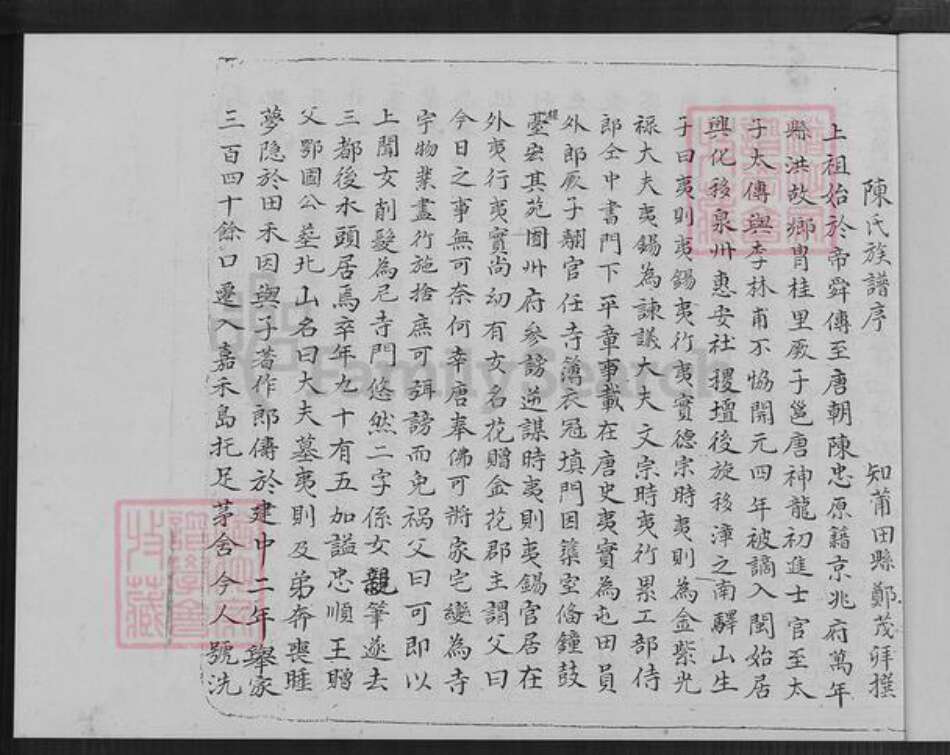 陳氏族譜序 知莆田縣鄭茂拜撰
上祖始於帝舜傳至唐朝陳忠原籍京兆府萬年
縣洪故鄉胄桂里厥子邕唐神龍初進士官至太
子太傅與李林甫不恊開元四年被謫入閩始居
興化移泉州惠安社稷壇後旋移漳之南驛山生
子曰夷則夷錫夷行夷實德宗時夷則為金紫光
祿大夫夷錫為諫議大夫文宗時夷行累工部侍
郎仝中書門下平章事載在唐史夷實為屯田員
外郎厥子翿官任寺簿衣冠填門因築室俻鐘鼓
臺宏其苑囿州府參謗逆謀時夷則夷錫官居在
外夷行夷實尚幼有女名花贈金花郡主謂父曰
今日之事無可奈何幸唐奉佛可將家宅變為寺
宇物業盡行施捨庶可弭謗而免禍父曰可即以
上聞女削髮為尼寺門悠然二字係女親筆遂去
三都後水頭居焉卒年九十有五加謚忠順王贈
父鄂國公墓北山名曰大夫墓夷則及弟奔喪睡
夢隐於田禾因與子著作郎儔於建中二年舉家
三百四十餘口遷入嘉禾島托足茅舍今人號洗
FamilySearch